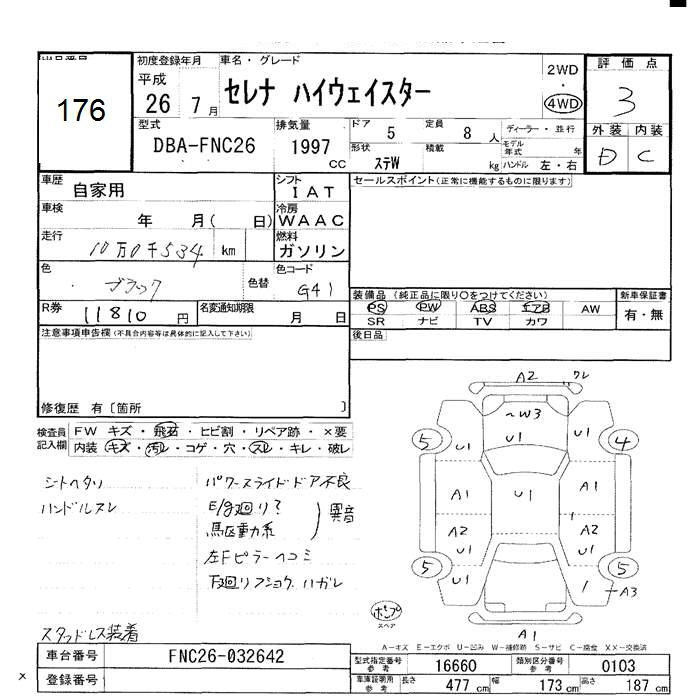 176
初度登録年月
平成
26 7月
車名・グレード
セレナ ハイウェイスター
2WD
・
4WD
評価点
3
外装 内装
D C
型式
DBA-FNC26
排気量
1997 CC
ドア 5
定員 8 人
形状 ステW
積載 kg
ディーラー・並行
モデル年式 年
ハンドル 左・右
車歴 自家用
シフト IAT
セールスポイント(正常に機能するものに限ります)
車検 年 月( 日)
冷房 WAAC
走行 10万0千534 km
燃料 ガソリン
色 ブラック
色替
色コード G41
R券 11810 円
名変通知期限 月 日
装備品 (純正品に限り○をつけてください)
PS PW ABS エアB AW
SR ナビ TV カワ
新車保証書
有・無
注意事項申告欄(不具合内容等は具体的に記入して下さい)
後日品
修復歴 有〔箇所 〕
検査員記入欄
FW キズ・飛石・ヒビ割・リペア跡・×要
内装 キズ・汚レ・コゲ・穴・スレ・キレ・破レ
シートヘタリ
ハンドルスレ
パワースライドドア不良
E/g廻り?
駆動系
異音
左Fピラーヘコミ
下廻りフショク、ハガレ
スタッドレス装着
A2 ワレ
~W3
U1
5 U1
U1 4
A1 U1 A1
A2 U1
A2 U1
5 U1
5
A3
A1
ポンプ
スペア
A-キズ E-エクボ U-凹み W-補修跡 S-サビ C-腐食 XX-交換済
車台番号 FNC26-032642
型式指定番号 参考 16660
類別区分番号 参考 0103
x 登録番号
車庫証明用 参考
長さ 477 cm 幅 173 cm 高さ 187 cm